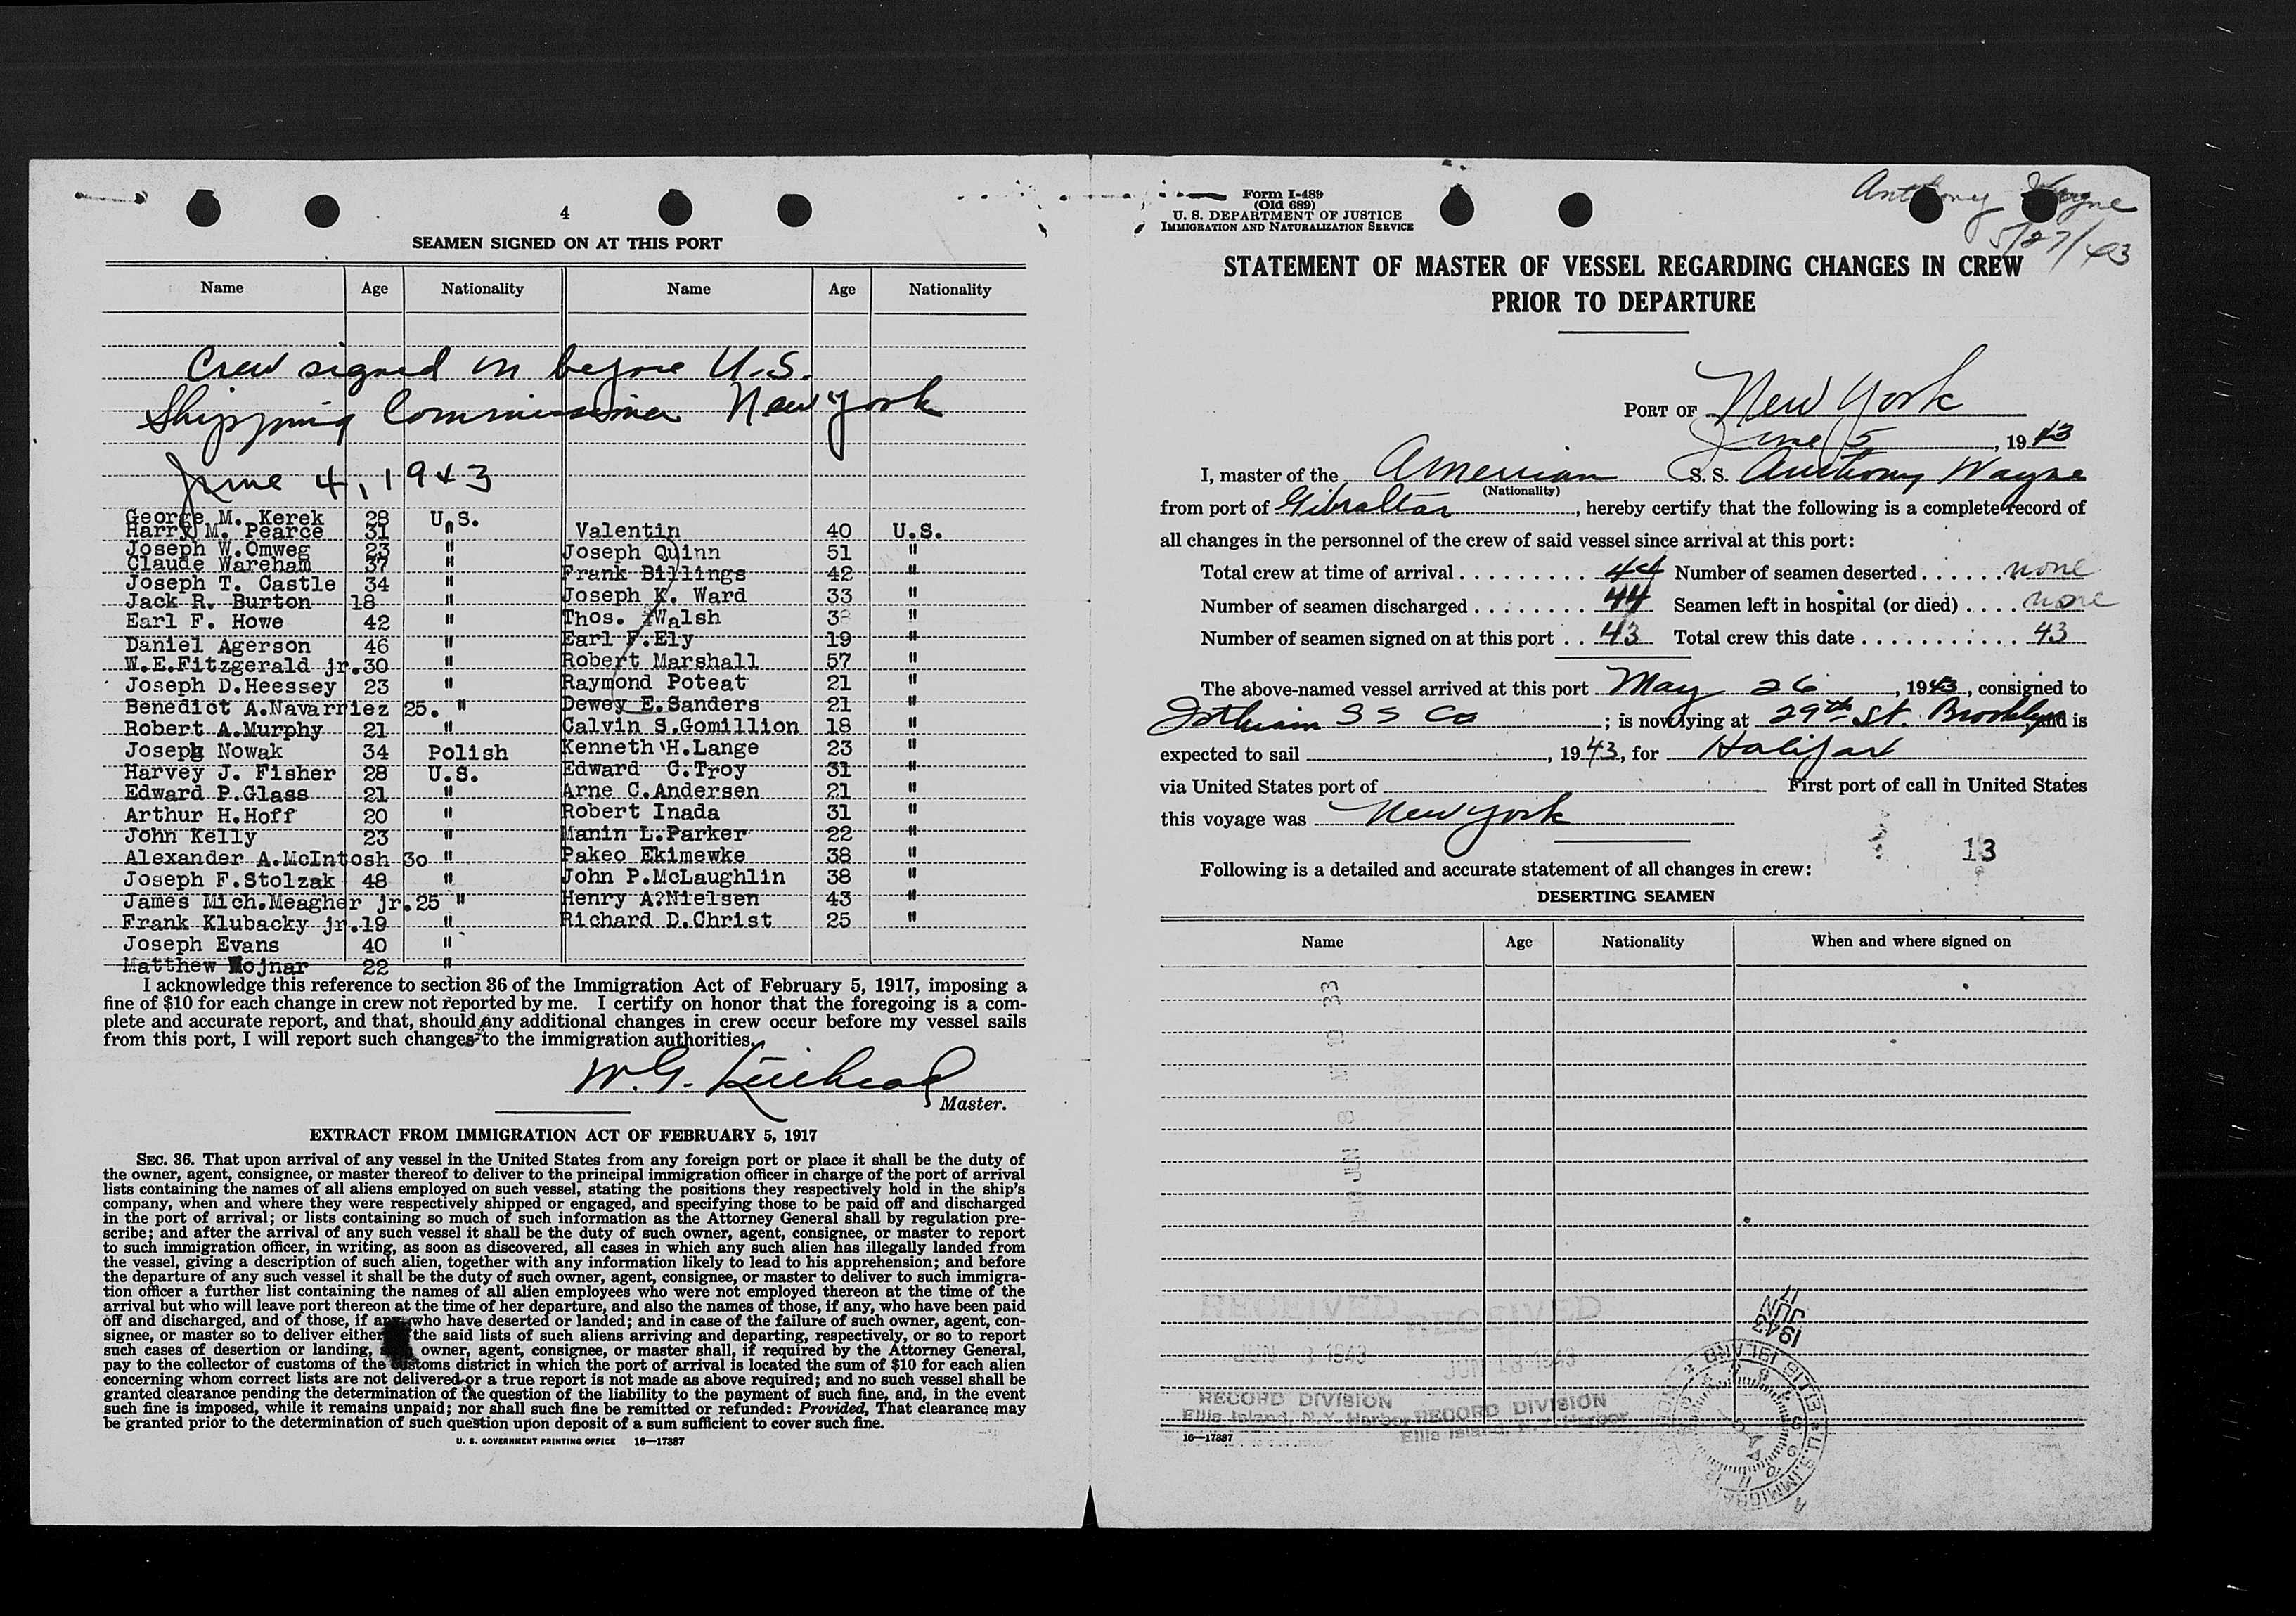 4
SEAMEN SIGNED ON AT THIS PORT
Name Age Nationality Name Age Nationality
Crew signed on before U.S.
Shipping Commissioner New York
June 4, 1943
George M. Kerek 28 U.S.
Harry M. Pearce 31 "
Joseph W.Omweg 23 "
Claude Wareham 37 "
Joseph T. Castle 34 "
Jack R. Burton 18 "
Earl F. Howe 42 "
Daniel Agerson 46 "
W.E.Fitzgerald jr.30 "
Joseph D.Heessey 23 "
Benedict A.Navarriez 25. "
Robert A.Murphy 21 "
Joseph Nowak 34 Polish
Harvey J. Fisher 28 U.S.
Edward P.Glass 21 "
Arthur H.Hoff 20 "
John Kelly 23 "
Alexander A.McIntosh 30 "
Joseph F.Stolzak 48 "
James Mich.Meagher jr.25 "
Frank Klubacky jr.19 "
Joseph Evans 40 "
Matthew Wojnar 22 "
Valentin 40 U.S.
Joseph Quinn 51 "
Frank Billings 42 "
Joseph K. Ward 33 "
Thos. Walsh 38 "
Earl F.Ely 19 "
Robert Marshall 57 "
Raymond Poteat 21 "
Dewey E.Sanders 21 "
Calvin S.Gomillion 18 "
Kenneth H.Lange 23 "
Edward C.Troy 31 "
Arne C.Andersen 21 "
Robert Inada 31 "
Manin L.Parker 22 "
Pakeo Ekimewke 38 "
John P.McLaughlin 38 "
Henry A?Nielsen 43 "
Richard D.Christ 25 "
I acknowledge this reference to section 36 of the Immigration Act of February 5, 1917, imposing a
fine of $10 for each change in crew not reported by me. I certify on honor that the foregoing is a com-
plete and accurate report, and that, should any additional changes in crew occur before my vessel sails
from this port, I will report such changes to the immigration authorities.
W. G.
Master.
EXTRACT FROM IMMIGRATION ACT OF FEBRUARY 5, 1917
SEC. 36. That upon arrival of any vessel in the United States from any foreign port or place it shall be the duty of
the owner, agent, consignee, or master thereof to deliver to the principal immigration officer in charge of the port of arrival
lists containing the names of all aliens employed on such vessel, stating the positions they respectively hold in the ship's
company, when and where they were respectively shipped or engaged, and specifying those to be paid off and discharged
in the port of arrival; or lists containing so much of such information as the Attorney General shall by regulation pre-
scribe; and after the arrival of any such vessel it shall be the duty of such owner, agent, consignee, or master to report
to such immigration officer, in writing, as soon as discovered, all cases in which any such alien has illegally landed from
the vessel, giving a description of such alien, together with any information likely to lead to his apprehension; and before
the departure of any such vessel it shall be the duty of such owner, agent, consignee, or master to deliver to such immigra-
tion officer a further list containing the names of all alien employees who were not employed thereon at the time of the
arrival but who will leave port thereon at the time of her departure, and also the names of those, if any, who have been paid
off and discharged, and of those, if any who have deserted or landed; and in case of the failure of such owner, agent, con-
signee, or master so to deliver either the said lists of such aliens arriving and departing, respectively, or so to report
such cases of desertion or landing, owner, agent, consignee, or master shall, if required by the Attorney General,
pay to the collector of customs of the customs district in which the port of arrival is located the sum of $10 for each alien
concerning whom correct lists are not delivered or a true report is not made as above required; and no such vessel shall be
granted clearance pending the determination of the question of the liability to the payment of such fine, and, in the event
such fine is imposed, while it remains unpaid; nor shall such fine be remitted or refunded: Provided, That clearance may
be granted prior to the determination of such question upon deposit of a sum sufficient to cover such fine.
U. S. GOVERNMENT PRINTING OFFICE 16—17887
Form I-489
(Old 689)
U. S. DEPARTMENT OF JUSTICE
IMMIGRATION AND NATURALIZATION SERVICE
Anthony Wayne
5/27/43
STATEMENT OF MASTER OF VESSEL REGARDING CHANGES IN CREW
PRIOR TO DEPARTURE
PORT OF New York
June 5, 1943
I, master of the American S. S. Anthony Wayne
(Nationality)
from port of Gibraltar, hereby certify that the following is a complete record of
all changes in the personnel of the crew of said vessel since arrival at this port:
Total crew at time of arrival 44 Number of seamen deserted none
Number of seamen discharged 44 Seamen left in hospital (or died) none
Number of seamen signed on at this port 43 Total crew this date 43
The above-named vessel arrived at this port May 26, 1943, consigned to
Isthmian S S Co; is now lying at 29th St. Brooklyn and is
expected to sail , 1943, for Halifax
via United States port of First port of call in United States
this voyage was New York
13
Following is a detailed and accurate statement of all changes in crew:
DESERTING SEAMEN
Name Age Nationality When and where signed on
RECEIVED RECEIVED
JUN 8 1943 JUN 18 1943
RECORD DIVISION RECORD DIVISION
Ellis Island, N.Y. Harbor Ellis Island, N.Y. Harbor
1943 JUN 17
ELLIS ISLAND U.S. IMMIGRA
16—17887